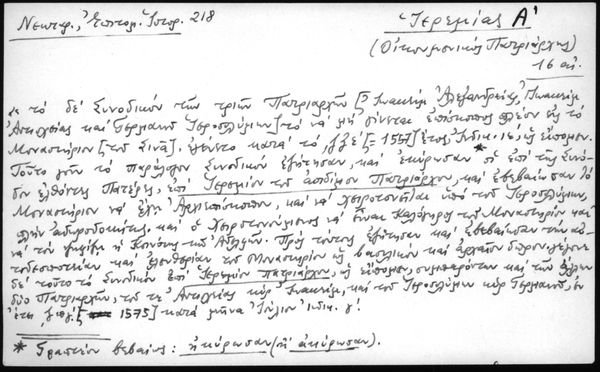 Νεκταρ., Ἐπιτομ. Ἱστορ. 218
Ἱερεμίας Α'
(Οἰκουμενικὸς Πατριάρχης)
16 αἰ.
« τὸ δὲ Συνοδικὸν τῶν τριῶν Πατριαρχῶν [= Ἰωακεὶμ Ἀλεξανδρείας, Ἰωακεὶμ
Ἀντιοχείας καὶ Γερμανοῦ Ἱεροσολύμων] τὸ νὰ μὴ γίνεται ἐπίσκοπος πλέον εἰς τὸ
Μοναστήριον [τοῦ Σινᾶ], ἐγένετο κατὰ τὸ [= 1557] ἔτος,
Τοῦτο τὸ Συνοδικὸν ἐζήτησαν, καὶ ἐκύρωσαν* οἱ ἐπὶ τῆς Συνό-
δου ἐλθόντες Πατέρες, ἐπὶ Ἱερεμίου τοῦ ἀοιδίμου Πατριάρχου, καὶ ἐβεβαίωσαν τὸ
Μοναστήριον νὰ ἔχῃ Ἀρχιεπίσκοπον, καὶ νὰ χειροτονῆται ὑπὸ τοῦ Ἱεροσολύμων,
πλὴν καὶ ὁ Χειροτονούμενος νὰ εἶναι Καλόγηρος τοῦ Μοναστηρίου καὶ
νὰ τὸν ψηφίζῃ ἡ Κοινότης τῶν Ἀδελφῶν. Πρὸς τούτοις ἐζήτησαν καὶ ἐβεβαίωσαν τὴν αὐ-
τοδεσποτείαν καὶ ἐλευθερίαν τοῦ Μοναστηρίου ὡς βασιλικὸν καὶ ἀρχαῖον
δὲ τοῦτο τὸ Συνοδικὸν ἐπὶ Ἱερεμίου πατριάρχου, ὡς εἴπομεν, συμπαρόντων καὶ τῶν ἄλλων
δύο Πατριαρχῶν, τοῦ τε Ἀντιοχείας κὺρ Ἰωακείμ, καὶ τοῦ Ἱεροσολύμων κὺρ Γερμανοῦ, ἐν
ἔτει [= 1575] κατὰ μῆνα Ἰούλιον Ἰνδικ. γ'.
* Γραπτέον βεβαίως: ἠκύρωσαν (ἢ ἀκύρωσαν).